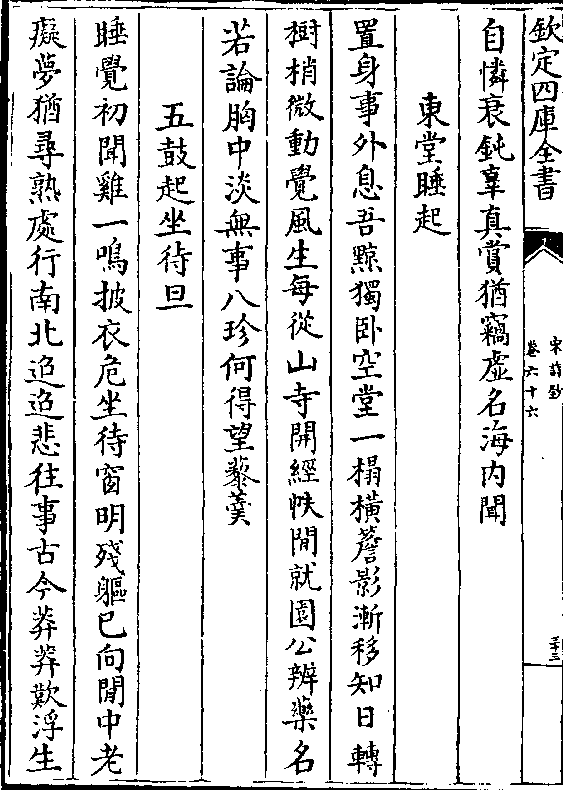 欽定四庫全書
宋詩鈔
卷六十六
三十三
自憐衰鈍辜真賞猶竊虛名海内聞
東堂睡起
置身事外息吾黥獨卧空堂一榻橫簷影漸移知日轉
樹梢微動覺風生每從山寺開經帙閒就園公辨藥名
若論胸中淡無事八珍何得望藜羹
五鼓起坐待旦
睡覺初聞雞一鳴披衣危坐待窗明殘軀已向閒中老
癡夢猶尋熟處行南北迢迢悲往事古今莽莽歎浮生